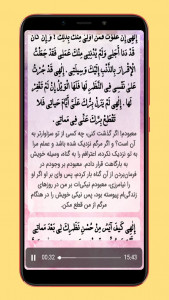 إِلٰهِى إِنْ عَفَوْتَ فَمَنْ أَوْلىٰ مِنْكَ بِذٰلِكَ ؟ وَ إِنْ كانَ
قَدْ دَنا أَجَلِى وَلَمْ يُدْنِنِى مِنْكَ عَمَلِى فَقَدْ جَعَلْتُ
الْإِقْرارَ بِالذَّنْبِ إِلَيْكَ وَسِيلَتِى ، إِلٰهِى قَدْ جُرْتُ
عَلَىٰ نَفْسِى فِى النَّظَرِ لَها فَلَهَا الْوَيْلُ إِنْ لَمْ تَغْفِرْ
لَها ، إِلٰهِى لَمْ يَزَلْ بِرُّكَ عَلَىَّ أَيَّامَ حَيَاتِى فَلا
تَقْطَعْ بِرَّكَ عَنِّى فِى مَماتِى
معبودم! اگر گذشت کنی، چه کسی از تو سزاوارتر به
آن است؟ و اگر مرگم نزدیک شده باشد و عملم مرا
به تو نزدیک نکرده، اعترافم به گناه، وسیله خویش
به بارگاهت قرار دادم، معبودم بر وجودم در
فرمان‌بردن از آن گناه بار کردم، پس وای بر او اگر او
را نیامرزی، معبودم نیکی‌ات بر من در روزهای
زندگی‌ام پیوسته بود، پس نیکی خویش را در هنگام
مرگم از من قطع مکن.
إِلٰهِى كَيْفَ آيَسُ مِنْ حُسْنِ نَظَرِكَ لِى بَعْدَ مَماتِى
00:32
15:43